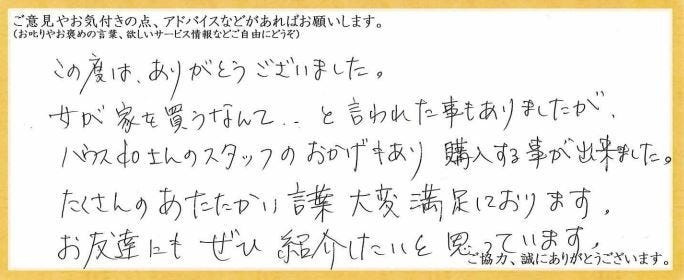 ご意見やお気付きの点、アドバイスなどがあればお願いします。
(お叱りやお褒めの言葉、欲しいサービス情報などご自由にどうぞ)
この度は、ありがとうございました。
女が家を買うなんて‥と言われた事もありましたが、
ハウスdoさんのスタッフのおかげもあり購入する事が出来ました。
たくさんのあたたかい言葉大変満足しております。
お友達にもぜひ紹介したいと思っています。
ご協力、誠にありがとうございます。